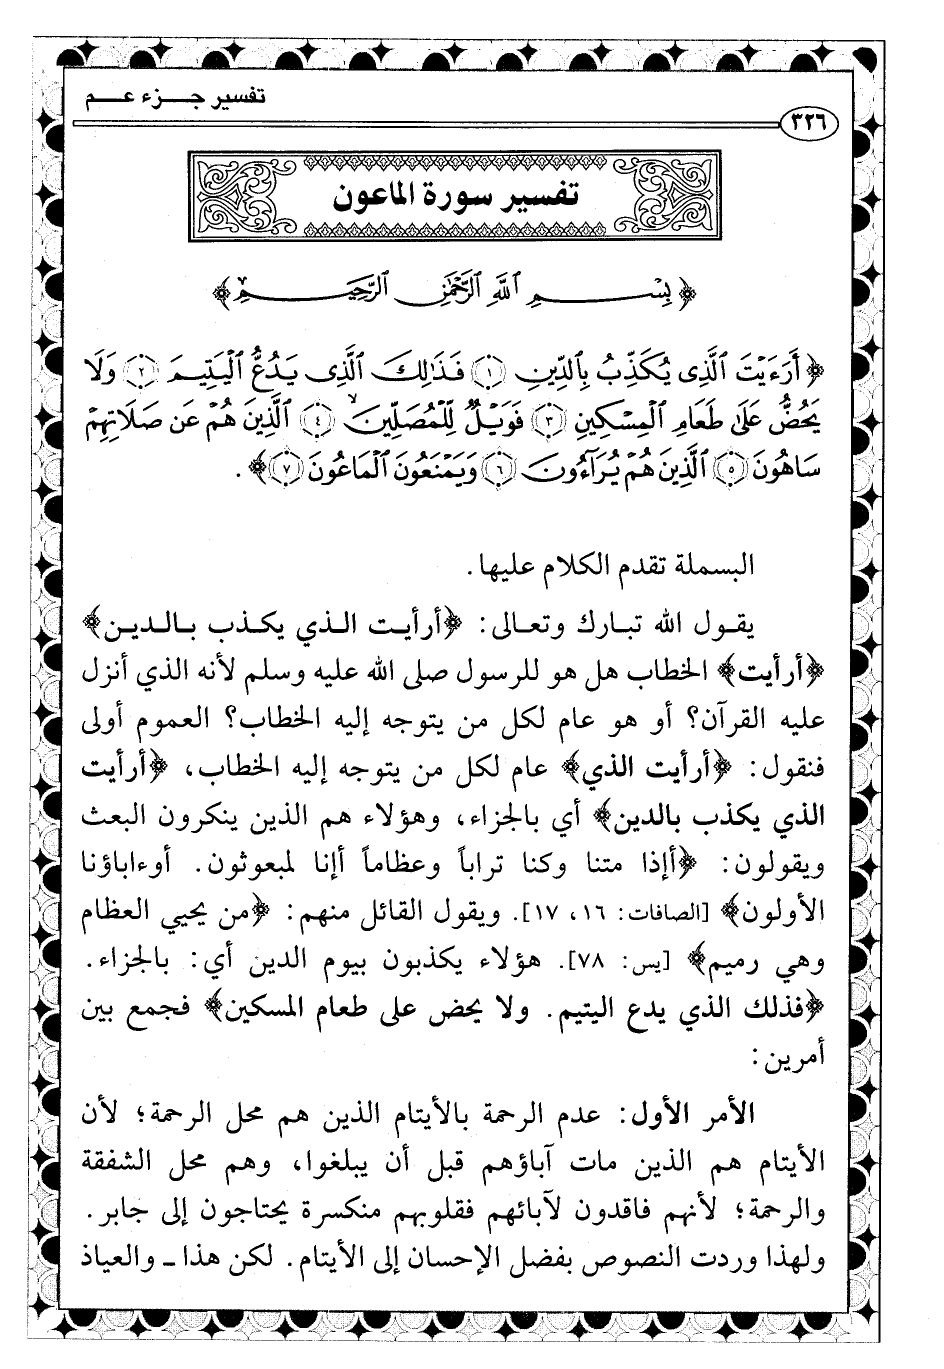 تفسير جـــزء عـــم
٣٢٦
تفسير سورة الماعون
﴿بِسْمِ اللَّهِ الرَّحْمَٰنِ الرَّحِيمِ﴾
﴿أَرَءَيْتَ الَّذِى يُكَذِّبُ بِالدِّينِ ١ فَذَٰلِكَ الَّذِى يَدُعُّ الْيَتِيمَ ٢ وَلَا
يَحُضُّ عَلَىٰ طَعَامِ الْمِسْكِينِ ٣ فَوَيْلٌ لِّلْمُصَلِّينَ ۙ ٤ الَّذِينَ هُمْ عَن صَلَاتِهِمْ
سَاهُونَ ٥ الَّذِينَ هُمْ يُرَآءُونَ ٦ وَيَمْنَعُونَ الْمَاعُونَ ٧﴾.
البسملة تقدم الكلام عليها.
يقول الله تبارك وتعالى: ﴿أرأيت الذي يكذب بالدين﴾
﴿أرأيت﴾ الخطاب هل هو للرسول صلى الله عليه وسلم لأنه الذي أنزل
عليه القرآن؟ أو هو عام لكل من يتوجه إليه الخطاب؟ العموم أولى
فنقول: ﴿أرأيت الذي﴾ عام لكل من يتوجه إليه الخطاب، ﴿أرأيت
الذي يكذب بالدين﴾ أي بالجزاء، وهؤلاء هم الذين ينكرون البعث
ويقولون: ﴿أإذا متنا وكنا تراباً وعظاماً أإنا لمبعوثون. أوءاباؤنا
الأولون﴾ [الصافات: ١٦، ١٧]. ويقول القائل منهم: ﴿من يحيي العظام
وهي رميم﴾ [يس: ٧٨]. هؤلاء يكذبون بيوم الدين أي: بالجزاء.
﴿فذلك الذي يدع اليتيم. ولا يحض على طعام المسكين﴾ فجمع بين
أمرين:
الأمر الأول: عدم الرحمة بالأيتام الذين هم محل الرحمة؛ لأن
الأيتام هم الذين مات آباؤهم قبل أن يبلغوا، وهم محل الشفقة
والرحمة؛ لأنهم فاقدون لآبائهم فقلوبهم منكسرة يحتاجون إلى جابر.
ولهذا وردت النصوص بفضل الإحسان إلى الأيتام. لكن هذا ـ والعياذ